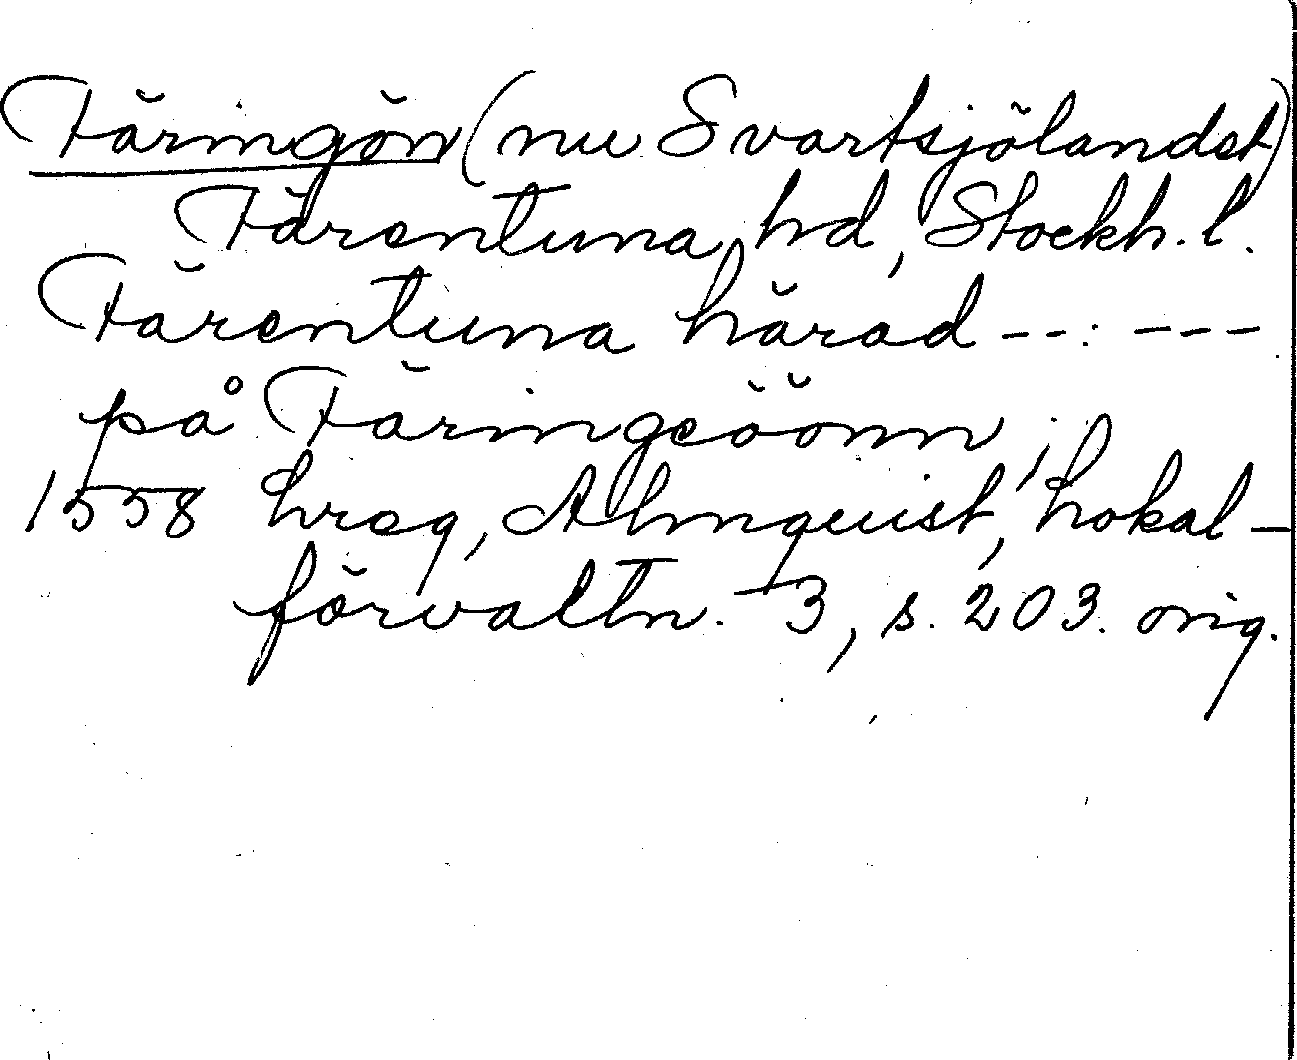 Färingön (nu Svartsjölandet)
Färentuna hd, Stockh. l.
Färentuna härad --: ---
på Färingeöönn,
1558 hreg, Almquist, Lokal-
förvaltn. 3, s. 203. orig.